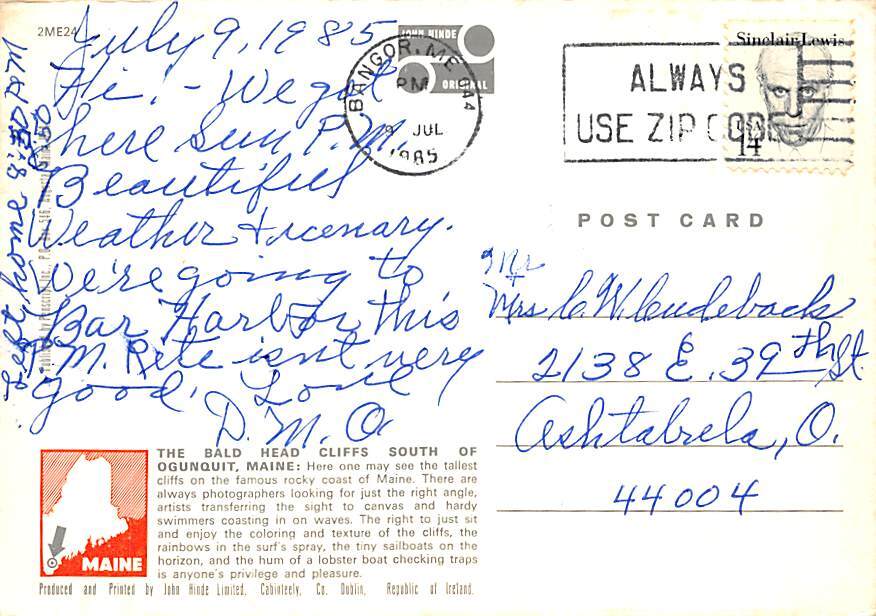 2ME24
July 9, 1985
Hi! - We got
here Sun P.M.
Beautiful
Weather & scenary.
We're going to
Bar Harbor this
P.M. Pete isn't very
good. Love
D. M. O.
Left home 8:30 AM
JOHN HINDE
ORIGINAL
BANGOR, ME 044
PM
9 JUL
1985
ALWAYS
USE ZIP CODE
Sinclair Lewis
14
POST CARD
Mr
+
Mrs C. W. Cudeback
2138 E. 39th St.
Ashtabula, O.
44004
THE BALD HEAD CLIFFS SOUTH OF
OGUNQUIT, MAINE: Here one may see the tallest
cliffs on the famous rocky coast of Maine. There are
always photographers looking for just the right angle,
artists transferring the sight to canvas and hardy
swimmers coasting in on waves. The right to just sit
and enjoy the coloring and texture of the cliffs, the
rainbows in the surf's spray, the tiny sailboats on the
horizon, and the hum of a lobster boat checking traps
is anyone's privilege and pleasure.
MAINE
Produced and Printed by John Hinde Limited, Cabinteely, Co. Dublin, Republic of Ireland.